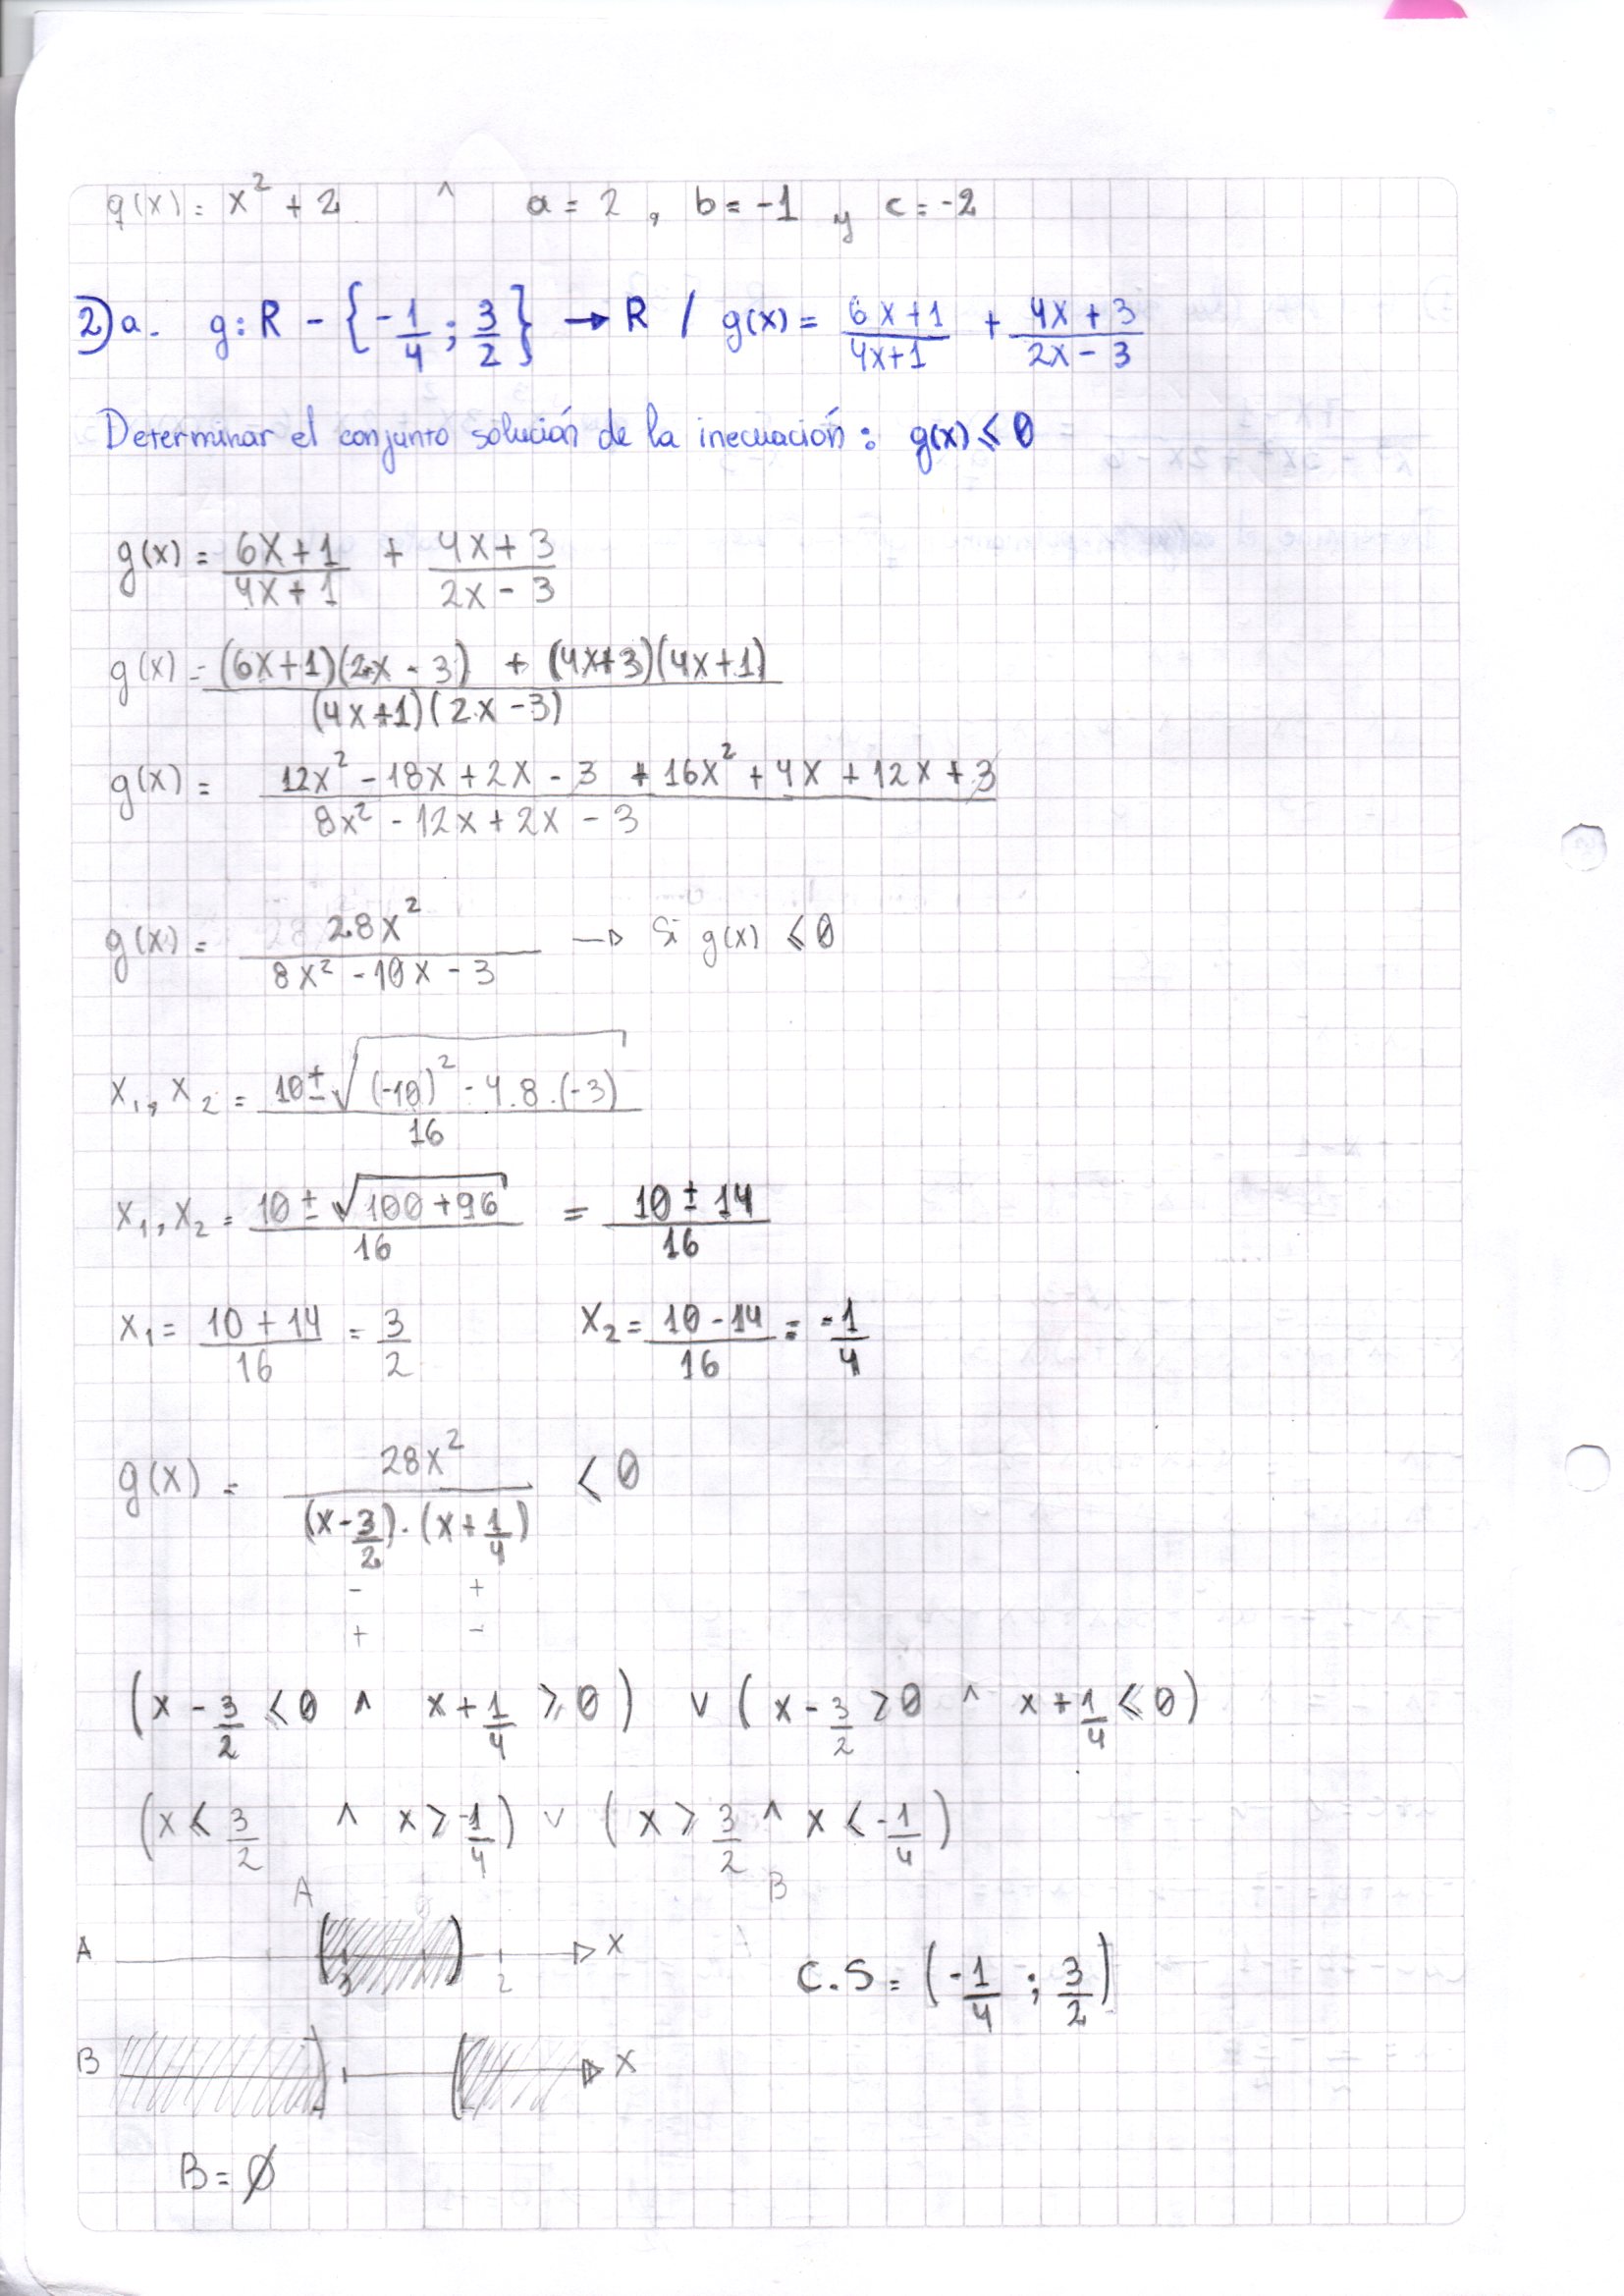 g(x) = x² + 2 ^ a = 2 , b = -1 y c = -2
2) a. g: R - {-1/4 ; 3/2} → R / g(x) = (6x+1)/(4x+1) + (4x+3)/(2x-3)
Determinar el conjunto solución de la inecuación: g(x) ≤ 0
g(x) = (6x+1)/(4x+1) + (4x+3)/(2x-3)
g(x) = ((6x+1)(2x-3) + (4x+3)(4x+1))/((4x+1)(2x-3))
g(x) = (12x² - 18x + 2x - 3 + 16x² + 4x + 12x + 3)/(8x² - 12x + 2x - 3)
g(x) = 28x²/(8x² - 10x - 3) → Si g(x) ≤ 0
x₁, x₂ = (10 ± √((-10)² - 4.8.(-3)))/16
x₁, x₂ = (10 ± √(100+96))/16 = (10 ± 14)/16
x₁ = (10 + 14)/16 = 3/2 x₂ = (10 - 14)/16 = -1/4
g(x) = 28x²/((x - 3/2).(x + 1/4)) < 0
- +
+ -
(x - 3/2 ≤ 0 ^ x + 1/4 ≥ 0) v (x - 3/2 ≥ 0 ^ x + 1/4 ≤ 0)
(x ≤ 3/2 ^ x > -1/4) v (x > 3/2 ^ x < -1/4)
A B
A x
2
C.S = (-1/4 ; 3/2)
B x
B = ∅